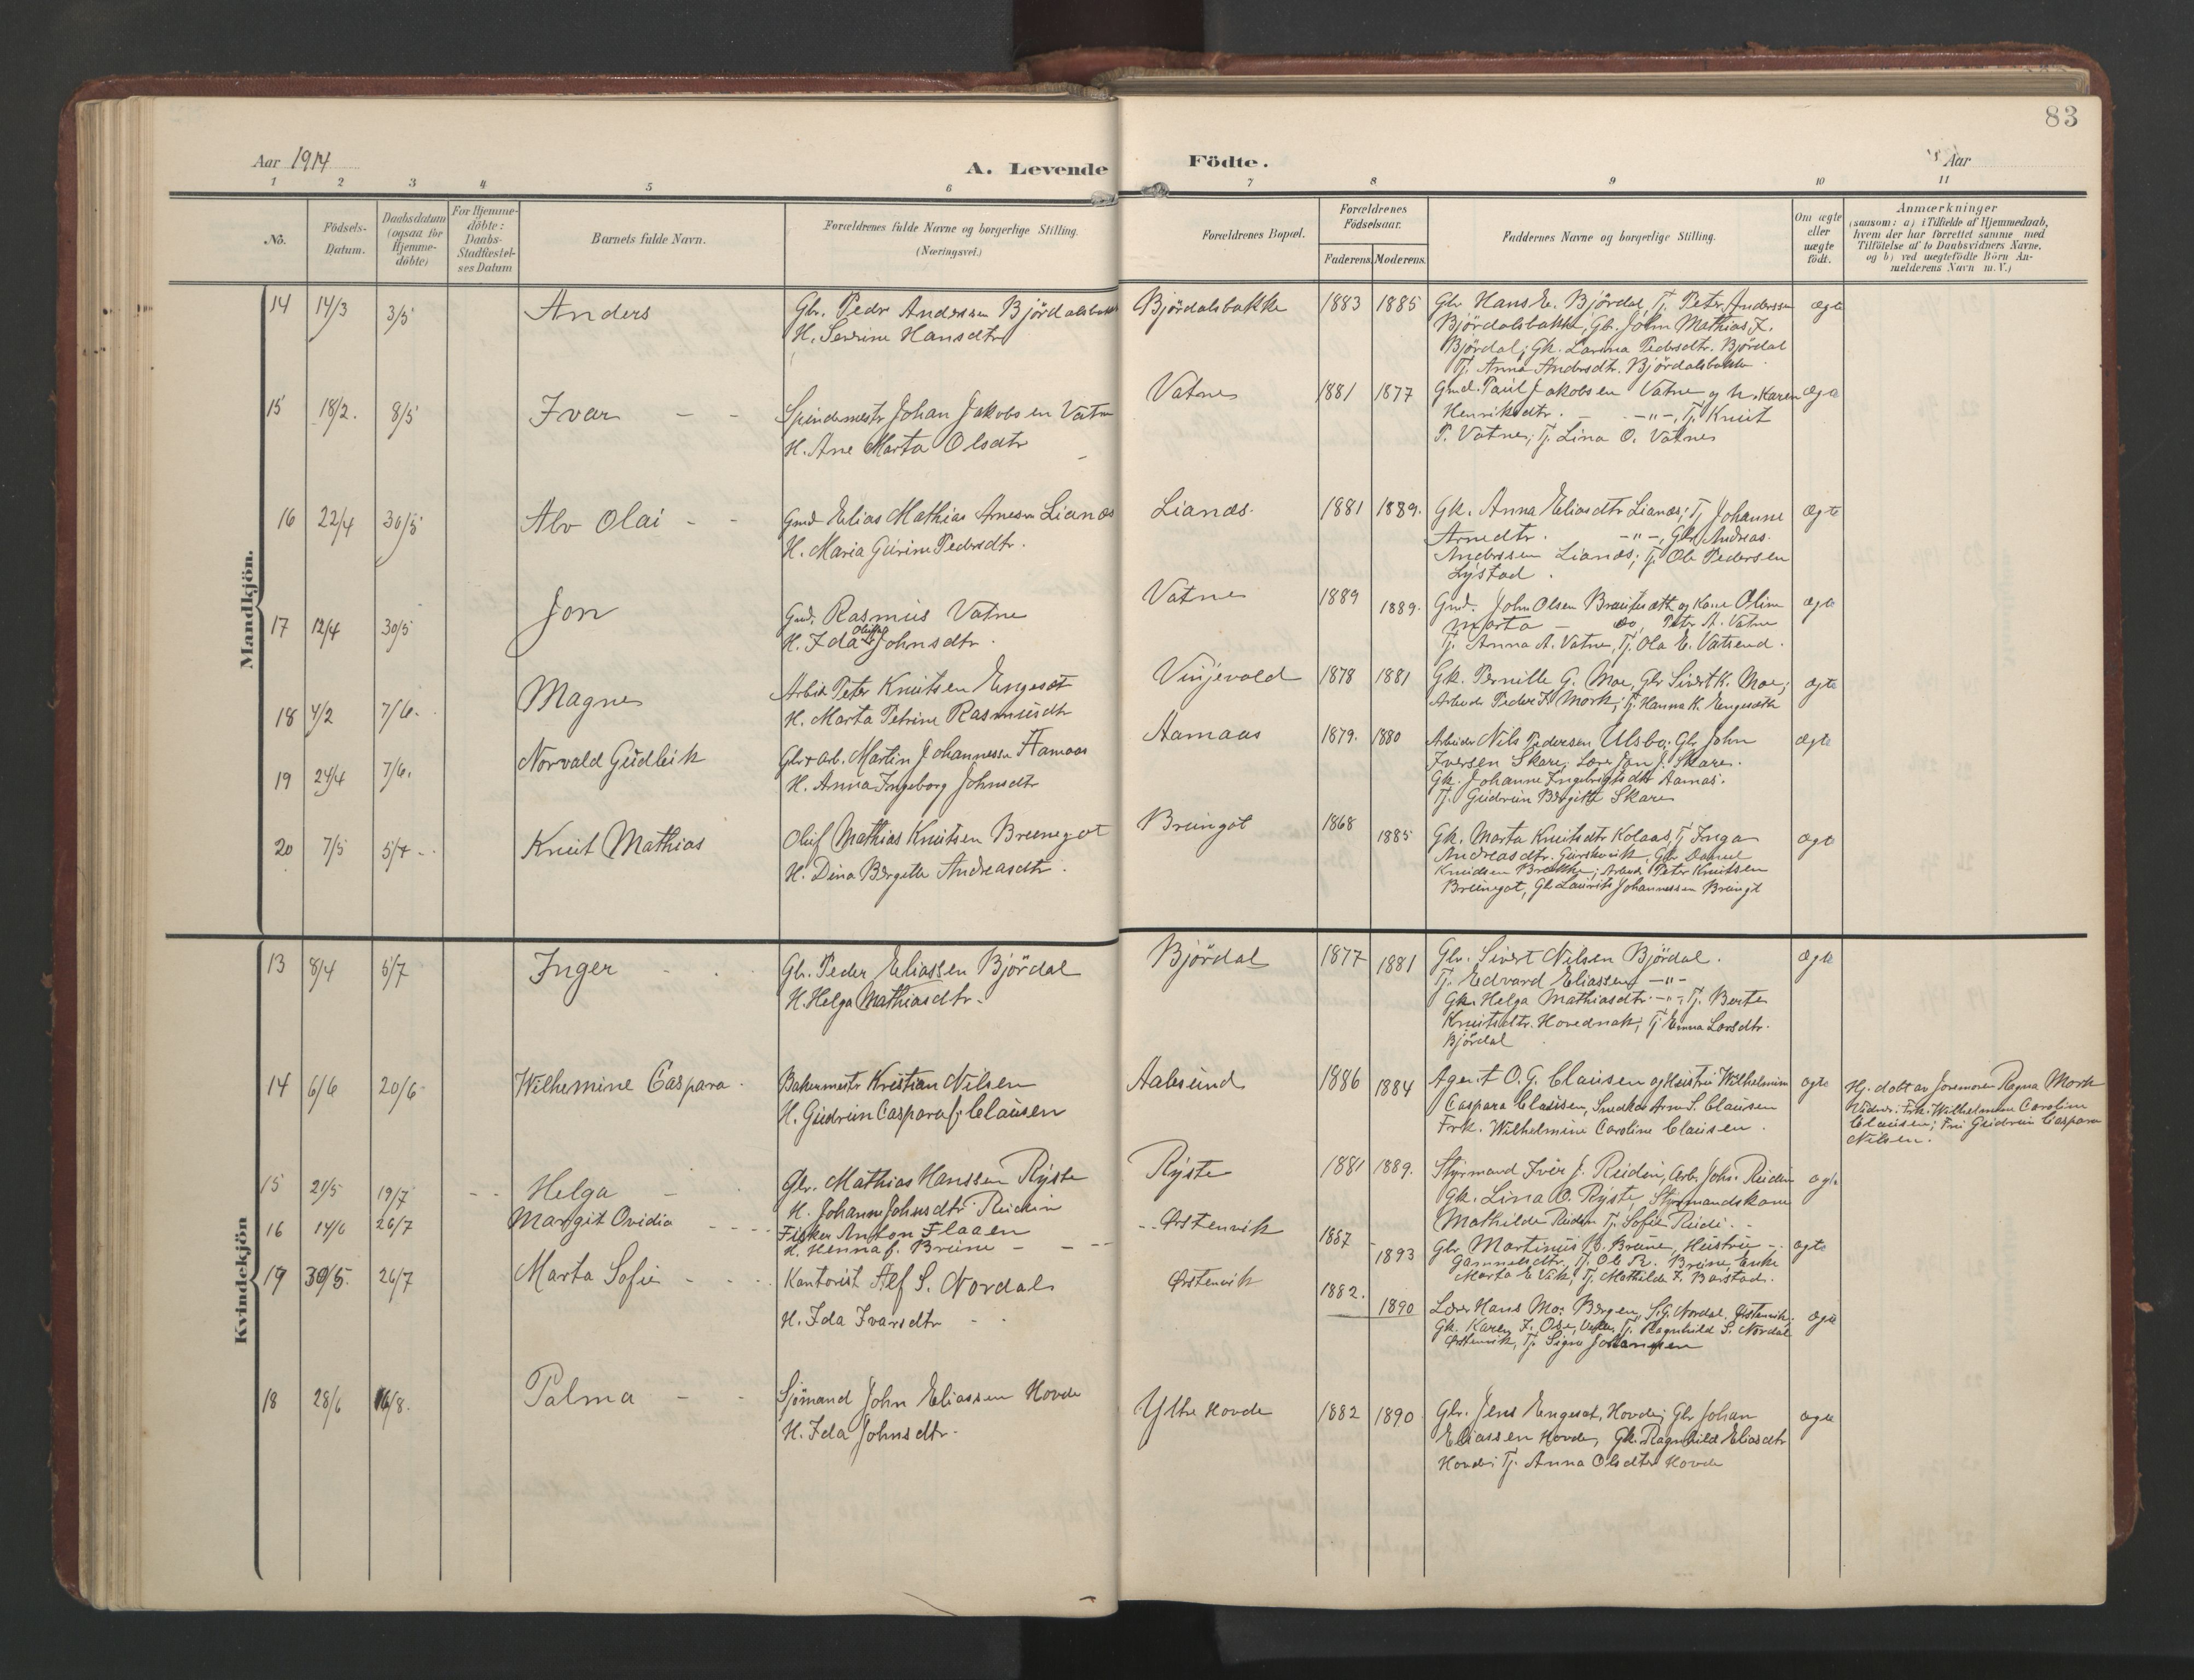 83
Aar 1914
A. Levende Födte.
Aar
1 2 3 4 5 6 7 8 9 10 11
No.
Födsels-
Datum.
Daabsdatum
(ogsaa for
Hjemme-
döbte)
For Hjemme-
döbte:
Daabs-
Stadfæstel-
ses Datum
Barnets fulde Navn.
Forældrenes fulde Navne og borgerlige Stilling.
(Næringsvei.)
Forældrenes Bopæl.
Forældrenes
Födselsaar.
Faderens. Moderens.
Faddernes Navne og borgerlige Stilling.
Om ægte
eller
uægte
födt.
Anmærkninger
(saasom: a) i Tilfælde af Hjemmedaab,
hvem der har forrettet samme med
Tilföielse af to Daabsvidners Navne,
og b) ved uægtefödte Börn An-
melderens Navn m. V.)
Mandkjön.
14 14/3 3/5 Anders
Gbr. Peder Anderssen Björdalsbakk
H. Serine Hansdtr
Björdalsbakke 1883 1885
Gbr Hans E. Björdal, Tj. Peter Anderssen
Björdalsbakke, Gb. John Mathias J.
Björdal; Gk. Larina Pedersdtr. Björdal
Tj. Anna Andersdtr. Björdalsbakke
ægte
15 18/2. 8/5 Ivar - -
Spindemestr Johan Jakobsen Vatne
H. Ane Marta Olsdtr
Vatne 1881 1877
Gmd. Paul Jakobsen Vatne og h. Karen
Henriksdtr. - -"-, Tj. Knut
P. Vatne; Tj. Lina O. Vatne
ægte
16 22/4 30/5 Alv Olai - -
Gmd Elias Mathias Arnesen Lianæs
H. Maria Gurine Pedersdtr.
Lianæs. 1881 1889.
Gk. Anna Eliasdtr Lianæs; Tj Johanne
Arnedtr. -"-, Gbr Andreas
Anderssen Lianæs; Tj. Ole Pedersen
Lystad.
ægte
17 12/4 30/5 Jon
Gmd. Rasmus Vatne
H. Ida Johnsdtr.
Vatne 1889 1889.
Gmd. John Olsen Brautesæth og Kone Oline
Marta - do, Peter A. Vatne
Tj. Anna A. Vatne, Tj. Ola E. Vatsend.
ægte
18 4/2 7/6. Magne
Arbeid Peter Knutsen Engeset
H. Marta Petrine Rasmusdtr
Vinjevold 1878 1881
Gk. Pernille G. Moe, Gbr Sivert K. Moe;
Arbeider Peder K Mork; Tj. Hanna K. Engesæth
ægte
19 24/4 7/6. Norvald Gudleik
Gbr & arb. Martin Johannessen Aamaas
H. Anna Ingeborg Johnsdtr
Aamaas 1879. 1880
Arbeider Nils Pedersen Ulsbø. Gbr John
Iversen Skare; Lærer Jon J. Skare.
Gk. Johanne Ingebrigtsdtr Aamas.
Tj. Gudrun Bergitte Skare
ægte
20 7/5 5/7 - . Knut Mathias
Oluf Mathias Knutsen Brunegot
H. Dina Bergitte Andreasdtr.
Brungot 1868 1885
Gk. Marta Knutsdtr Kolaas, Tj Inga
Andreasdtr. Gurskevik, Gbr Daniel
Knudsen Brække; Arbeid. Peter Knutsen
Brungot, Gb Laurits Johannessen Brungt
ægte
Kvindekjön
13 8/4 5/7 Inger
Gb. Peder Eliassen Björdal
H. Helga Mathiasdtr.
Björdal 1877 1881
Gbr. Sivert Nilsen Björdal.
Tj. Edvard Eliassen -"-
Gk. Helga Mathiasdtr. -"- Tj. Berte
Knutsdtr. Hovednak; Tj Emma Larsdtr.
Björdal
ægte
14 6/6 20/6 Wilhemine Caspara.
Bakermestr Kristian Nilsen
H. Gudrun Caspara f. Clausen
Aalesund 1886 1884
Agent O. G. Clausen og Hustru Wilhelmine
Caspara Clausen, Snedker Arne S. Clausen
Frk. Wilhelmine Caroline Clausen.
ægte
Hj. døbt av Jormoren Ragna Mork
Vidner: Frk. Wilhelmine Caroline
Clausen; Fru Gudrun Caspara
Nilsen.
15 21/5 19/7 Helga
Gbr. Mathias Hanssen Ryste
H. Johanne Johnsdtr Reidin
Ryste 1881 1889.
Styrmand Iver J. Reidin, Arb. Johs. Reidin
Gk. Lina O. Ryste, Styrmandskone
Mathilde Reiden Tj. Sofie Reidi.
ægte
16 14/6 26/7 Margit Ovidia
Fisker Anton Flaaen
H. Henna f. Brune
Ørstenvik 1887 1893
Gbr Martinus B. Brune, Hustru
Gammelsdtr, Tj. Ole R. Brune, Enke
Marta E Vik; Tj. Mathilde J. Barstad.
ægte
17 30/5. 26/7 Marta Sofie
Kontorist Alf S. Nordal
H. Ida Ivarsdtr
Ørstenvik 1882. 1890
Lærer Hans Mo: Bergen, S. G. Nordal. Ørstenvik.
Gk. Karen J. Ose, Tj. Ragnhild S. Nordal
Ørstenvik, Tj. Signe
ægte
18 28/6 16/8. Palma - -
Sjömand John Eliassen Hovde
H. Ida Johnsdtr.
Ytre Hovde 1882 1890
Gbr. Jens Engeset, Hovde; Gbr Johan
Eliassen Hovde, Gk. Ragnhild Eliasdtr
Hovde; Tj. Anna Olsdtr Hovde
ægte